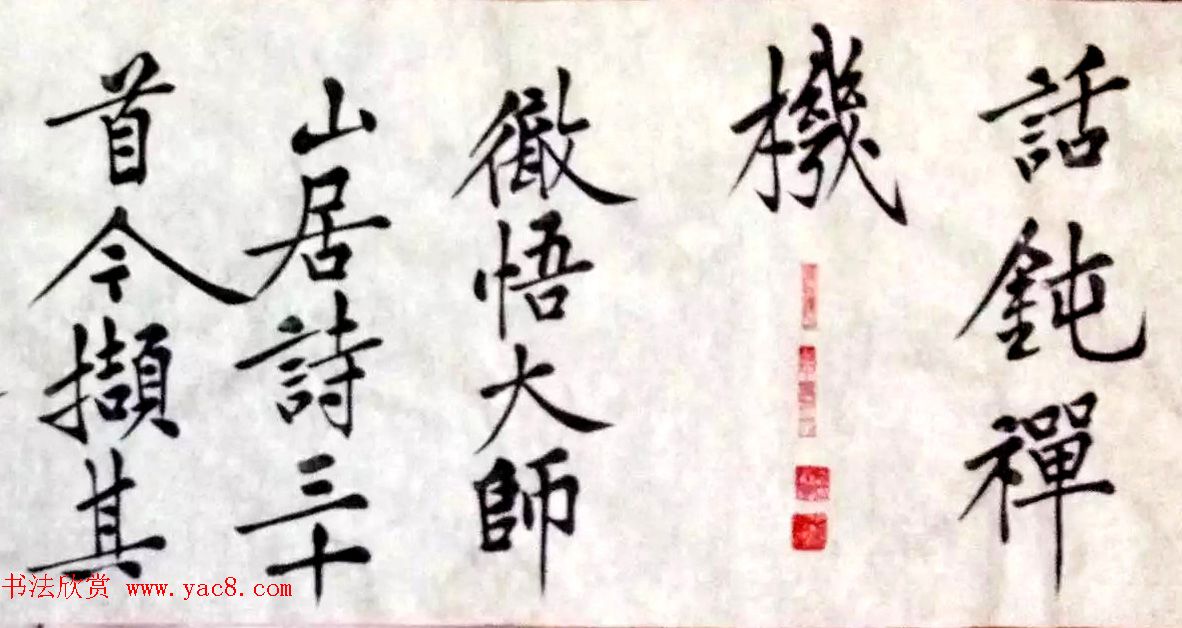 話鈍禪
機
徹悟大師
山居詩三十
首今擷其
书法欣赏 www.yac8.com